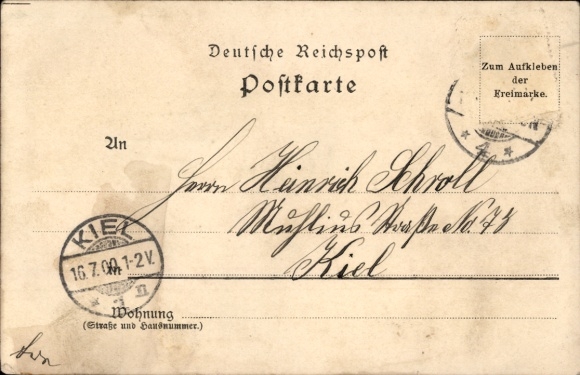 Deutsche Reichspost
Postkarte
Zum Aufkleben
der
Freimarke.
An
Herrn Heinrich Schroll
Muhlius Straße No. 73
Kiel
in
KIEL
16.7.00.1-2V.
* 1 n
* 4 *
Wohnung
(Straße und Hausnummer.)